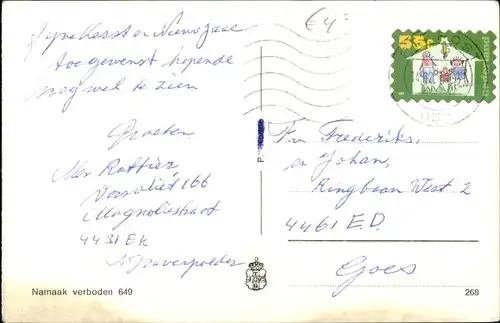 Fijne Kerst en Nieuwjaar
toegewenst hopende
nog wel te zien
Groeten
Mev Rottier
Voorvliet 166
Magnoliastraat
4431 EK
's Graverpolder
€ 4
55
nederland
P
Fam Frederiks.
en Johan,
Ringbaan West 2
4461 E.D.
Goes
Namaak verboden 649
268